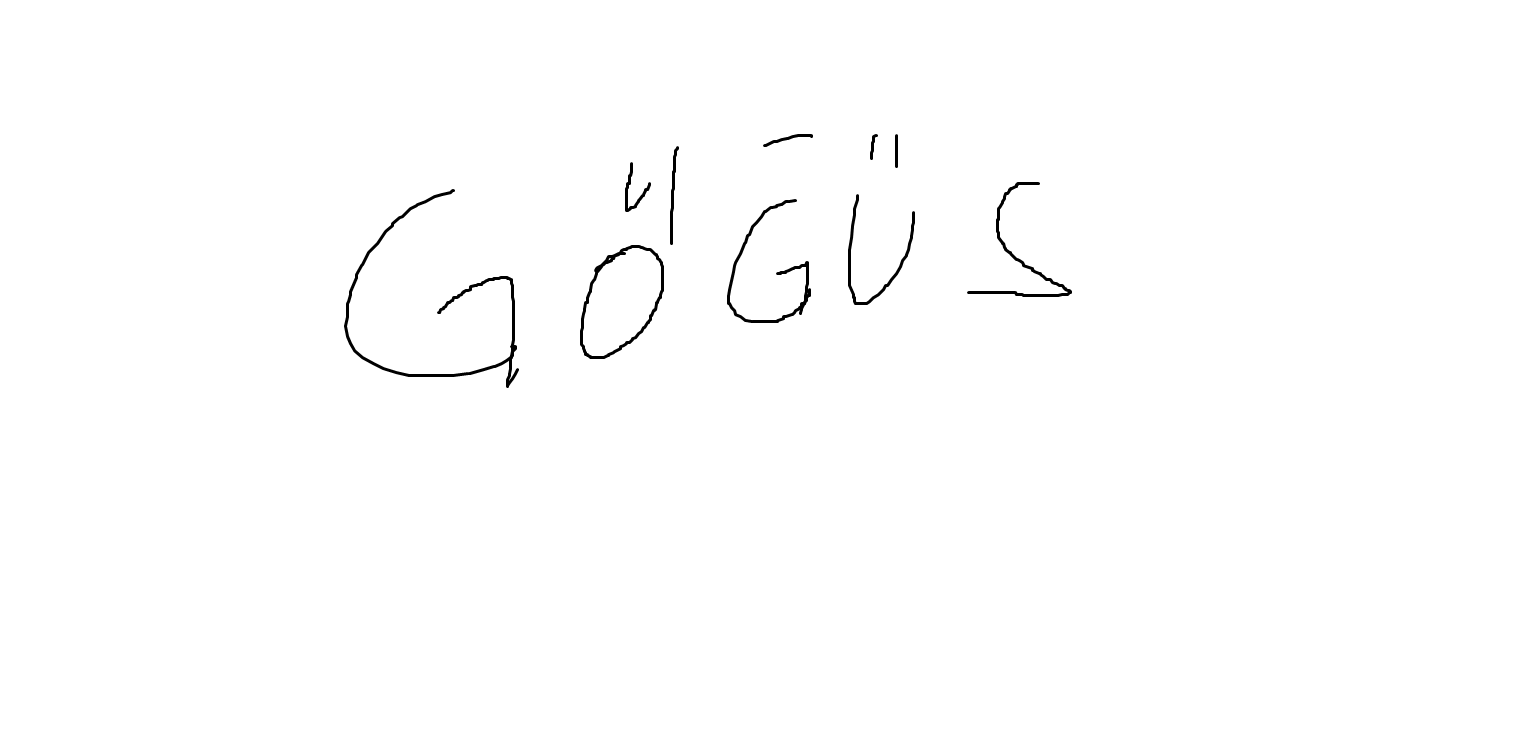 GÖĞÜS